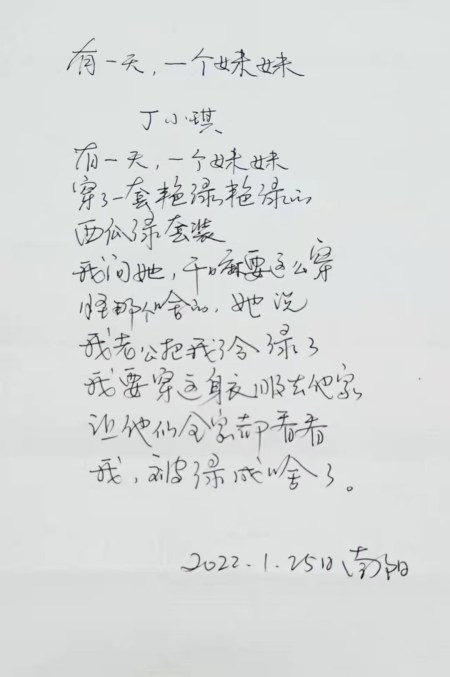 有一天，一个妹妹
丁小琪
有一天，一个妹妹
穿了一套艳绿艳绿的
西瓜绿套装
我问她，干嘛要这么穿
怪那个啥的，她说
我老公把我给绿了
我要穿这身衣服去他家
让他们全家都看看
我，被绿成啥了。
2022.1.25日南阳